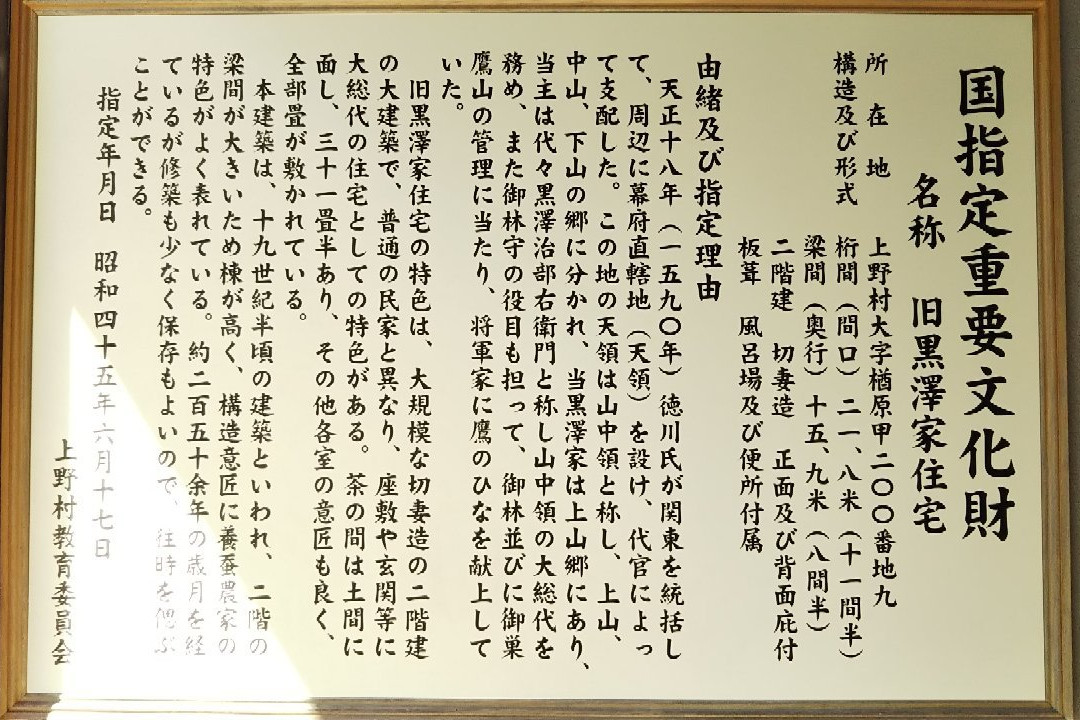 国指定重要文化財
名称　旧黒澤家住宅
所在地　上野村大字楢原甲二〇〇番地九
構造及び形式　桁間（間口）二一、八米（十一間半）
梁間（奥行）十五、九米（八間半）
二階建　切妻造　正面及び背面庇付
板葺　風呂場及び便所付属
由緒及び指定理由
天正十八年（一五九〇年）徳川氏が関東を統括し
て、周辺に幕府直轄地（天領）を設け、代官によっ
て支配した。この地の天領は山中領と称し、上山、
中山、下山の郷に分かれ、当黒澤家は上山郷にあり、
当主は代々黒澤治部右衛門と称し山中領の大総代を
務め、また御林守の役目も担って、御林並びに御巣
鷹山の管理に当たり、将軍家に鷹のひなを献上して
いた。
旧黒澤家住宅の特色は、大規模な切妻造の二階建
の大建築で、普通の民家と異なり、座敷や玄関等に
大総代の住宅としての特色がある。茶の間は土間に
面し、三十一畳半あり、その他各室の意匠も良く、
全部畳が敷かれている。
本建築は、十九世紀半頃の建築といわれ、二階の
梁間が大きいため棟が高く、構造意匠に養蚕農家の
特色がよく表れている。約二百五十余年の歳月を経
ているが修築も少なく保存もよいので、往時を偲ぶ
ことができる。
指定年月日　昭和四十五年六月十七日
上野村教育委員会